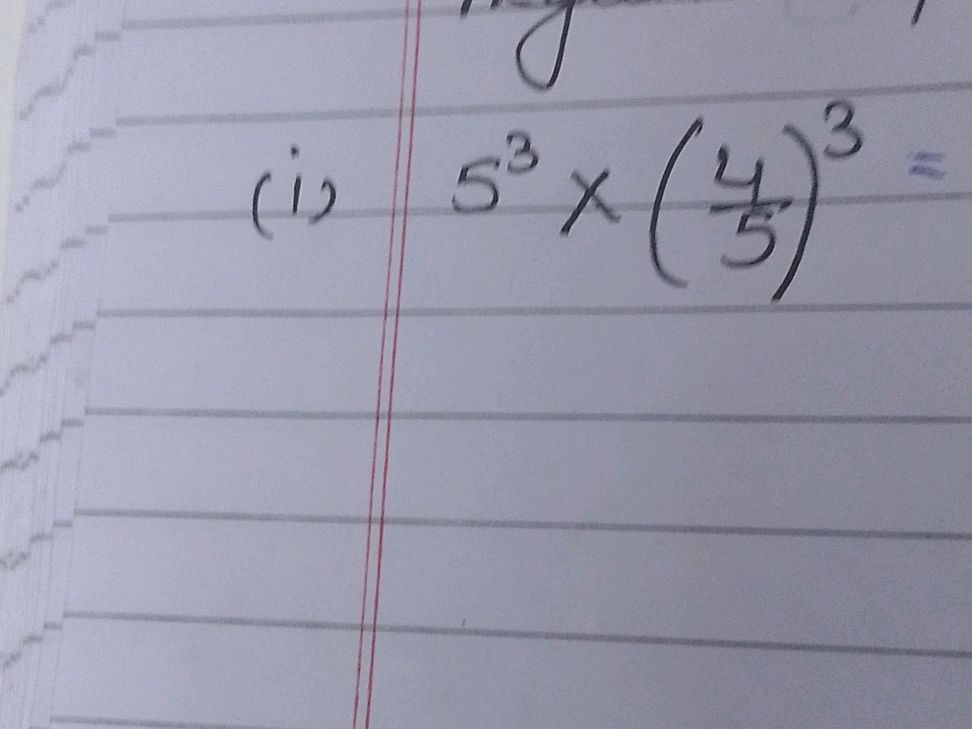 (i) 5³ × (4/5)³ =